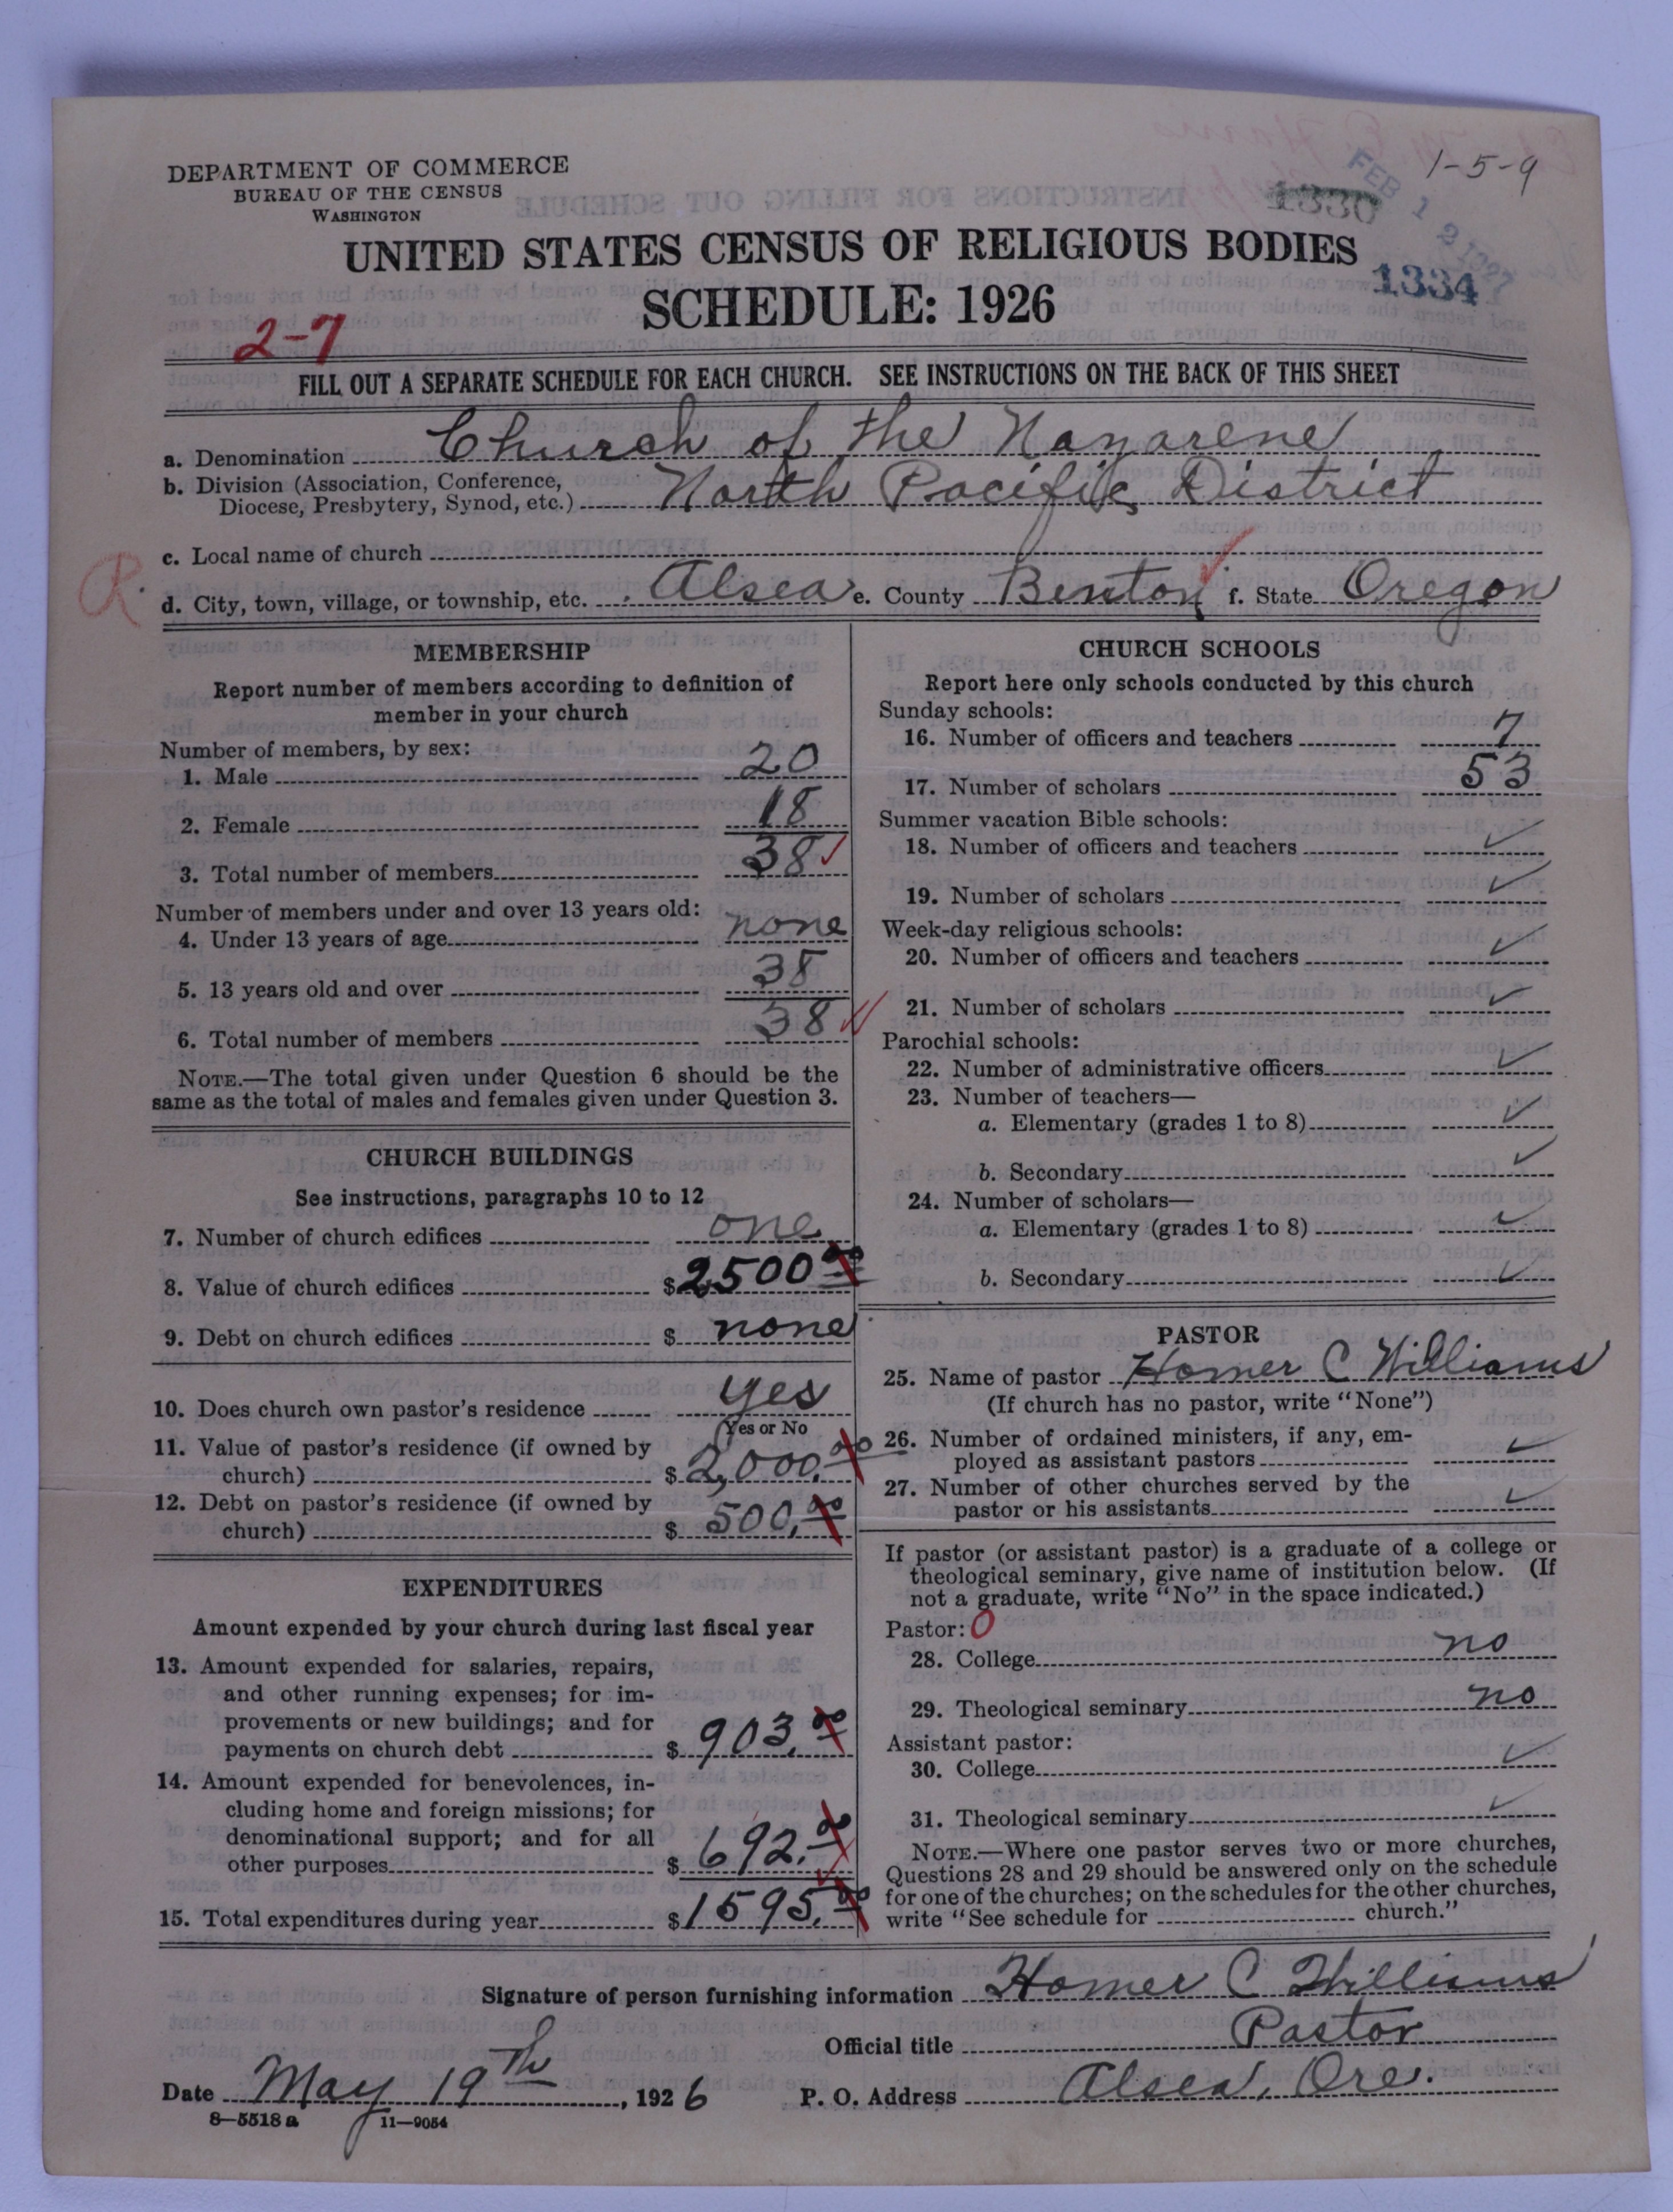 1-5-9
DEPARTMENT OF COMMERCE
BUREAU OF THE CENSUS
WASHINGTON
1330
FEB 1
UNITED STATES CENSUS OF RELIGIOUS BODIES
1334
SCHEDULE: 1926
2-7
FILL OUT A SEPARATE SCHEDULE FOR EACH CHURCH. SEE INSTRUCTIONS ON THE BACK OF THIS SHEET
a. Denomination Church of the Nazarene
b. Division (Association, Conference,
Diocese, Presbytery, Synod, etc.) North Pacific District
c. Local name of church
R.
d. City, town, village, or township, etc. Alsea e. County Benton f. State Oregon
MEMBERSHIP
Report number of members according to definition of
member in your church
Number of members, by sex:
1. Male 20
2. Female 18
3. Total number of members 38 ✓
Number of members under and over 13 years old:
4. Under 13 years of age none
5. 13 years old and over 38
6. Total number of members 38 ✓
NOTE.—The total given under Question 6 should be the
same as the total of males and females given under Question 3.
CHURCH BUILDINGS
See instructions, paragraphs 10 to 12
7. Number of church edifices one
8. Value of church edifices $2500.00
9. Debt on church edifices $ none
10. Does church own pastor's residence yes
(Yes or No
11. Value of pastor's residence (if owned by
church) $2,000.00
12. Debt on pastor's residence (if owned by
church) $ 500.00
EXPENDITURES
Amount expended by your church during last fiscal year
13. Amount expended for salaries, repairs,
and other running expenses; for im-
provements or new buildings; and for
payments on church debt $ 903.00
14. Amount expended for benevolences, in-
cluding home and foreign missions; for
denominational support; and for all
other purposes $ 692.00
15. Total expenditures during year $1595.00
CHURCH SCHOOLS
Report here only schools conducted by this church
Sunday schools:
16. Number of officers and teachers 7
17. Number of scholars 53
Summer vacation Bible schools:
18. Number of officers and teachers ✓
19. Number of scholars ✓
Week-day religious schools:
20. Number of officers and teachers ✓
21. Number of scholars ✓
Parochial schools:
22. Number of administrative officers ✓
23. Number of teachers—
a. Elementary (grades 1 to 8) ✓
b. Secondary ✓
24. Number of scholars—
a. Elementary (grades 1 to 8) ✓
b. Secondary ✓
PASTOR
25. Name of pastor Homer C Williams
(If church has no pastor, write "None")
26. Number of ordained ministers, if any, em-
ployed as assistant pastors ✓
27. Number of other churches served by the
pastor or his assistants ✓
If pastor (or assistant pastor) is a graduate of a college or
theological seminary, give name of institution below. (If
not a graduate, write "No" in the space indicated.)
Pastor: 0
28. College no
29. Theological seminary no
Assistant pastor:
30. College ✓
31. Theological seminary ✓
NOTE.—Where one pastor serves two or more churches,
Questions 28 and 29 should be answered only on the schedule
for one of the churches; on the schedules for the other churches,
write "See schedule for church."
Signature of person furnishing information Homer C Williams
Official title Pastor
Date May 19th, 1926 P. O. Address Alsea, Ore.
8—5518 a 11—9054